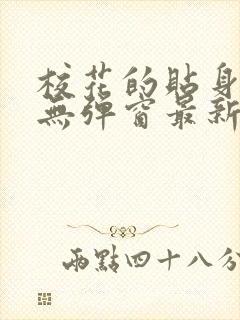 校花的貼身
無彈窗最新
兩點四十八分